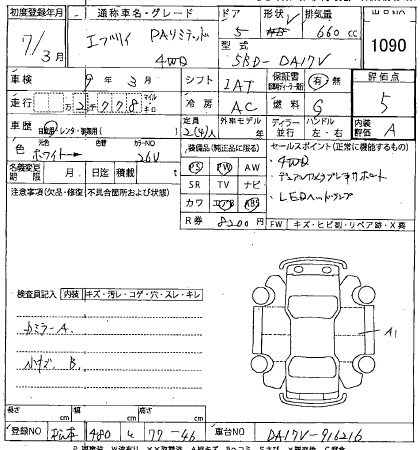 初度登録年月 通称車名・グレード ドア 形状 排気量
7/3月 エブリイ PAリミテッド 4WD 5 V 660 cc 1090
型式 5BD-DA17V
車検 9年3月 シフト IAT 保証書 有・無 評価点
走行 2千778 マイル キロ 冷房 AC 燃料 G 5
車歴 自家用・レンタ・事務用( ) 定員 2(4)人 外車モデル 年 ディーラー 並行 ハンドル 左・右 内装評価 A
色 元色 色替 カラーNO
ホワイト→ 26U
装備品(純正品に限る) セールスポイント(正常に機能するもの)
名義変更期限 月 日迄 積載 t PS PW AW ・4WD
注意事項(欠品・修復・不具合箇所および状態) SR TV ナビ ・デュアルカメラブレーキサポート
カワ エアB ABS ・LEDヘッドランプ
R券 8200円 FW キズ・ヒビ割・リペア跡・X要
検査員記入 内装 キズ・汚レ・コゲ・穴・スレ・キレ
カミラーA.
小キズ B. A1
長さ cm 幅 cm 高さ cm
登録NO 松本 480 く 77-46 車台NO DA17V-916216